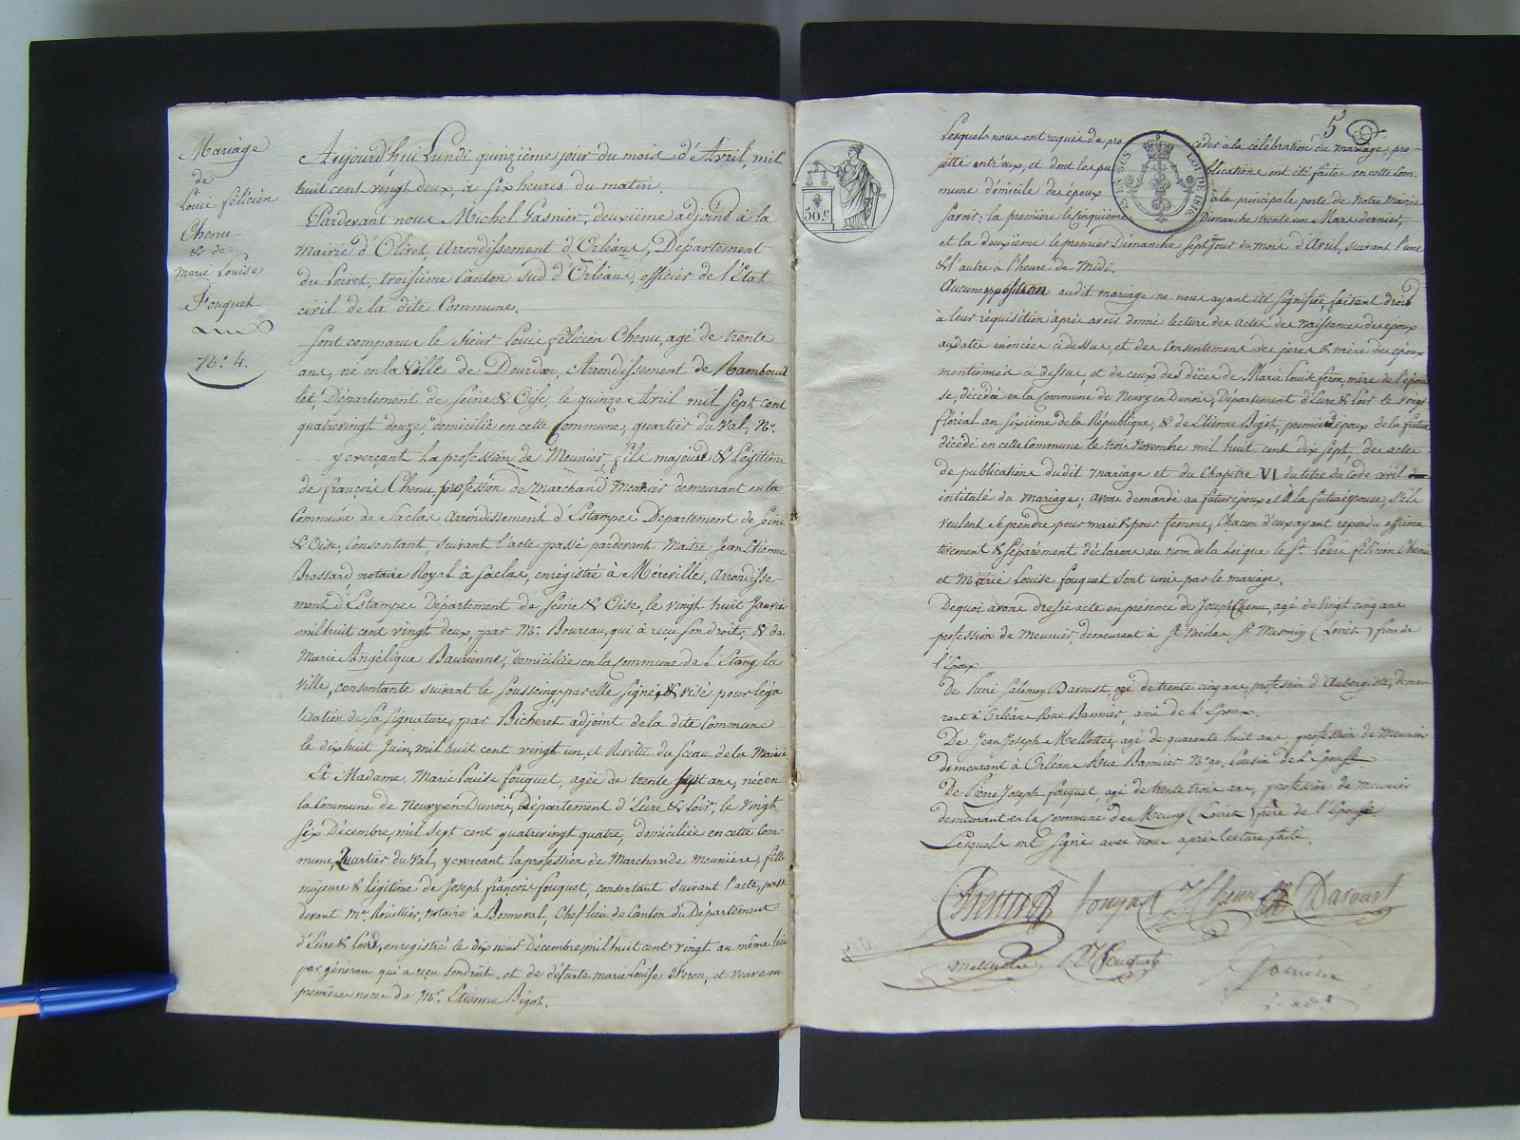 Mariage
de
Louis félicien
Chenu
& de
Marie Louise
Fouquet
N.° 4.
Aujourd'hui Lundi quinzième jour du mois d'Avril, mil
huit cent vingt deux, à six heures du matin.
Pardevant nous Michel Gasnier, deuxième adjoind à la
Mairie d'Olivet, Arrondissement d'Orléans, Département
du Loiret, troisième Canton sud d'Orléans, officier de l'Etat
civil de la dite Commune.
Sont comparus le Sieur Louis félicien Chenu, agé de trente
ans, né en la Ville de Dourdan, Arrondissement de Rambouil
let, Département de Seine & Oise, le quinze Avril mil sept cent
quatrevingt douze, domicilié en cette Commune, quartier du Val, N.°
y exerçant la profession de Meunier, fils majeur & légitime
de françois Chenu, profession de marchand Meunier demeurant en la
Commune de Saclas Arrondissement d'Estampes Département de Seine
& Oise, Consentant, suivant l'acte passé pardevant Maitre Jean Etienne
Brossard notaire Royal à Saclas, enrégistré à Méréville, Arrondisse
ment d'Estampes Département de Seine & Oise, le vingt huit Janvier
mil huit cent vingt deux, par M.r Boureau, qui à reçu son droit; & de
Marie Angélique domiciliée en la commune de l'Etang la
Ville, consentante suivant le sousseing, par elle signé, & visé pour léga
lisation de sa signature, par Bicheret adjoint de la dite Commune
le dixhuit Juin, mil huit cent vingt un, et Revêtu du sceau de la Mairie
Et Madame Marie Louise fouquet, agée de trente sept ans, née en
la Commune de Neuvy en Dunois, Département d'Eure & Loir, le vingt
six Décembre, mil sept cent quatrevingt quatre, domiciliée en cette Com-
mune, Quartier du Val, y exerçant la profession de Marchande meunière, fille
majeure & légitime de Joseph françois fouquet, consentant suivant l'acte, passé
devant M.e notaire à Bonneval, Chef lieu de Canton du Département
d'Eure & Loir, enregistré le dix neuf Décembre, mil huit cent vingt au même lieu
par qui a reçu son droit, et de défunte marie Louise feron, et veuve en
première noces de M.r Etienne Bigot.
5
50.c
LOUIS DE 1816
Lesquels nous ont requis de pro cédés à la célébration du mariage, pro-
jetté entr'eux, et dont les pu blications ont été faites en cette Com-
mune domicile des époux à la principale porte de notre Mairie
savoir: la première le Dimanche trente un Mars dernier,
et la deuxième le premier Dimanche sept jour du mois d'Avril, suivant l'une
& l'autre à l'heure de Midi.
Aucune opposition audit mariage ne nous ayant été signifiée, faisant droit
à leur réquisition après avoir donné lecture des Actes de Naissances des époux
aux dates énoncées cidessus, et des Consentement des pères & mère des époux
mentionnés ci dessus, et de ceux des décès de Marie Louise feron, mère de l'épou
se, décédée en la Commune de Neuvy en Dunois, Département d'Eure & Loir le
floréal an sixième de la République, & de Etienne Bigot, premier époux de la future
décédé en cette Commune le trois Novembre mil huit cent dix sept, des actes
de publications dudit Mariage et du Chapitre VI du titre du Code civil
intitulé du mariage; avons demandé au futur époux et à la future épouse, s'ils
veulent se prendre pour mari & pour femme, Chacun d'eux ayant répondu affirma
tivement & séparément déclarons au nom de la loi que le S.r Louis félicien Chenu
et Marie Louise fouquet sont unis par le mariage.
De quoi avons dressé acte en présence de Joseph Chenu, agé de vingt cinq ans
profession de Meunier, demeurant à S.t S.t Mesmin (Loiret) frère de
l'époux
De agé de trente cinq ans, profession d'Aubergiste, demeu
rant à Orléans Rue Bannier, ami de l'époux.
De Jean Joseph agé de quarante huit ans profession de Meunier
demeurant à Orléans Rue Bannier N.° cousin de l'épouse
De Pierre Joseph fouquet, agé de trente trois ans, profession de meunier
demeurant en la Commune de Meung (Loiret) frère de l'épouse.
Lesquels ont signé avec nous après lecture faite.
Chenu fouquet J Chenu
P J fouquet Gasnier